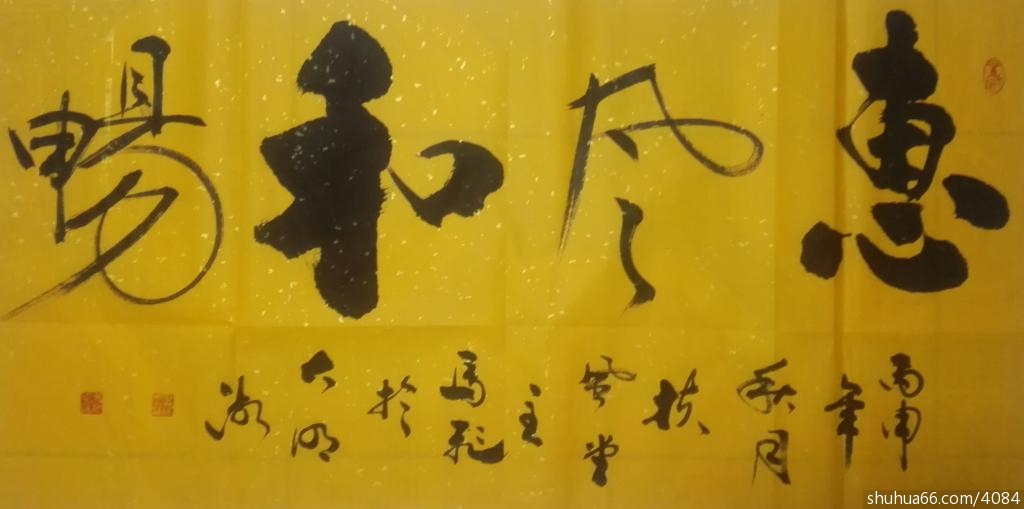 惠风和畅
丙申年秋月扶风堂主马飛於大明湖
shuhua66.com/4084